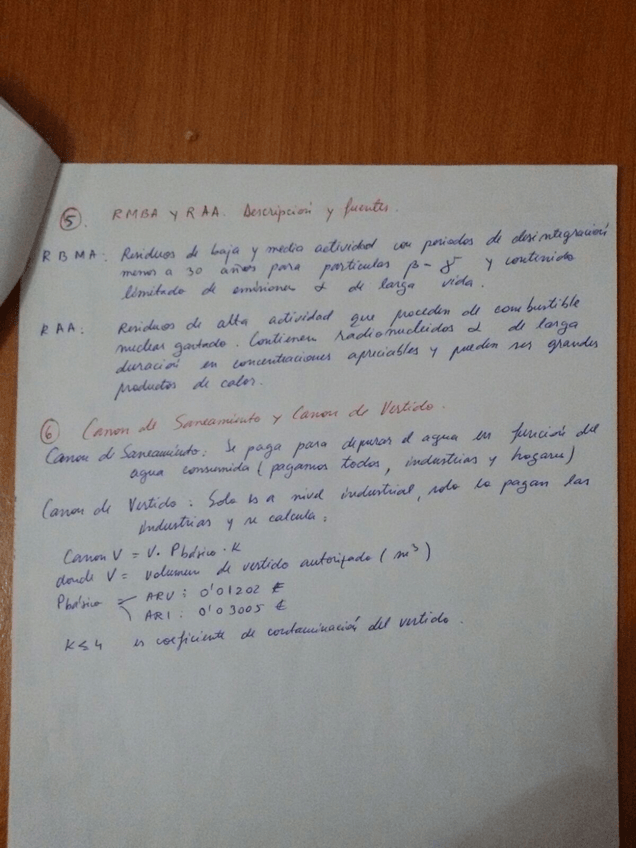 5. RMBA y RAA. Descripción y fuentes.
RBMA: Residuos de baja y media actividad con periodos de desintegración
menos a 30 años para partículas β-γ y contenido
limitado de emisiones α de larga vida.
RAA: Residuos de alta actividad que proceden de combustible
nuclear gastado. Contienen radionucleidos α de larga
duración en concentraciones apreciables y pueden ser grandes
productos de calor.
6 Canon de Saneamiento y Canon de Vertido.
Canon de Saneamiento: Se paga para depurar el agua en función del
agua consumida (pagamos todos, industrias y hogares)
Canon de Vertido: Solo es a nivel industrial, solo lo pagan las
industrias y se calcula:
Canon V = V. Pbásico. K
donde V = volumen de vertido autorizado (m³)
Pbásico ARU: 0'01202 €
ARI: 0'03005 €
K≤4 es coeficiente de contaminación del vertido.